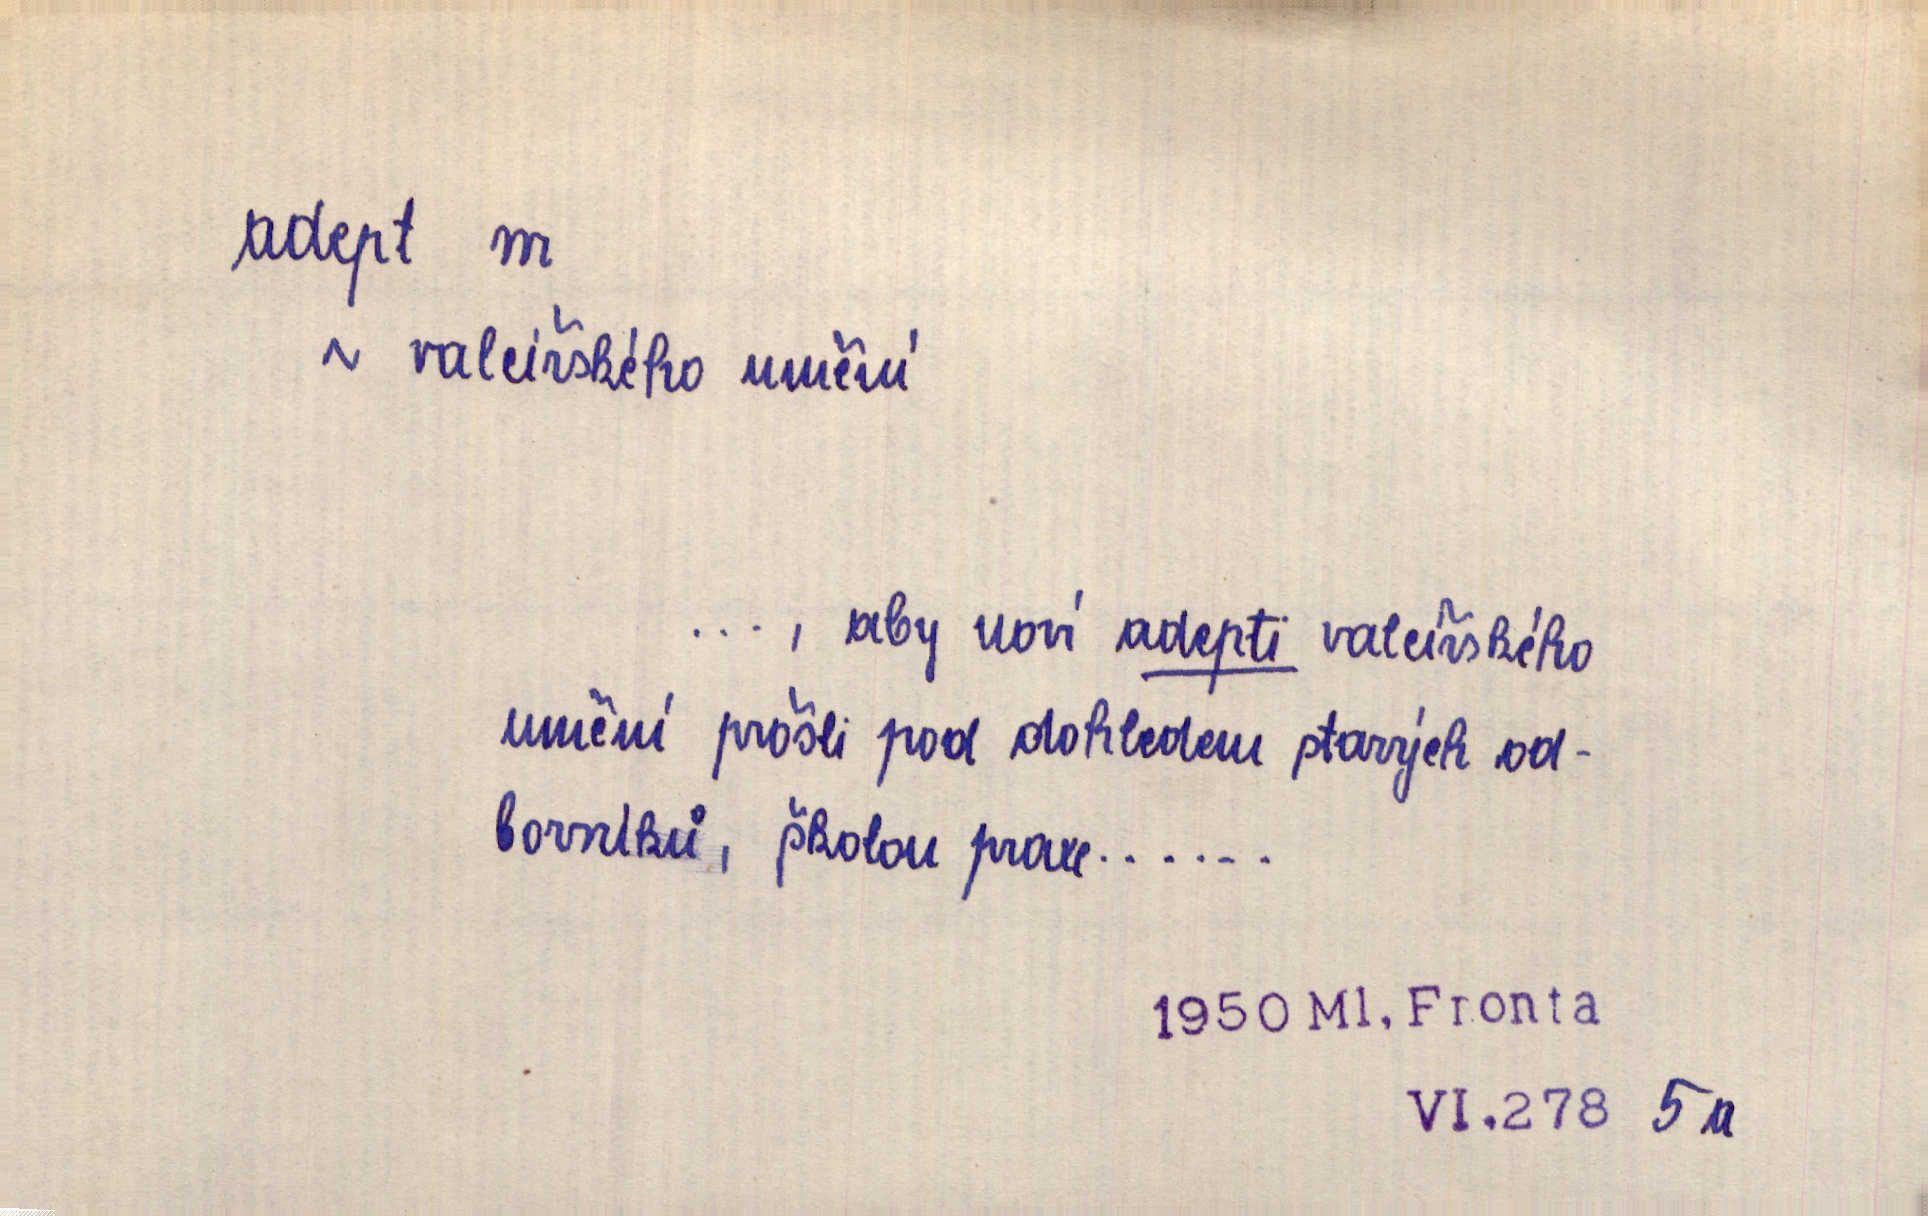 adept m
~ valcířského umění
...., aby noví adepti valcířského
umění prošli pod dohledem starých od-
borníků, školou praxe.......
1950 Ml. Fronta
VI.278 5a